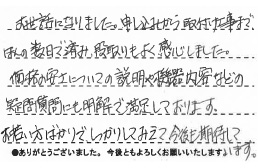 お世話になりました。申し込みから取付け工事まで、
ほんの数日で済み、段取りもよく感心しました。
価格の安さについての説明や機器内容などの
疑問質問にも明解で満足しております。
お若い方ばかりでしっかりしてみえて今後も期待して
います。
●ありがとうございました。今後ともよろしくお願いいたします。